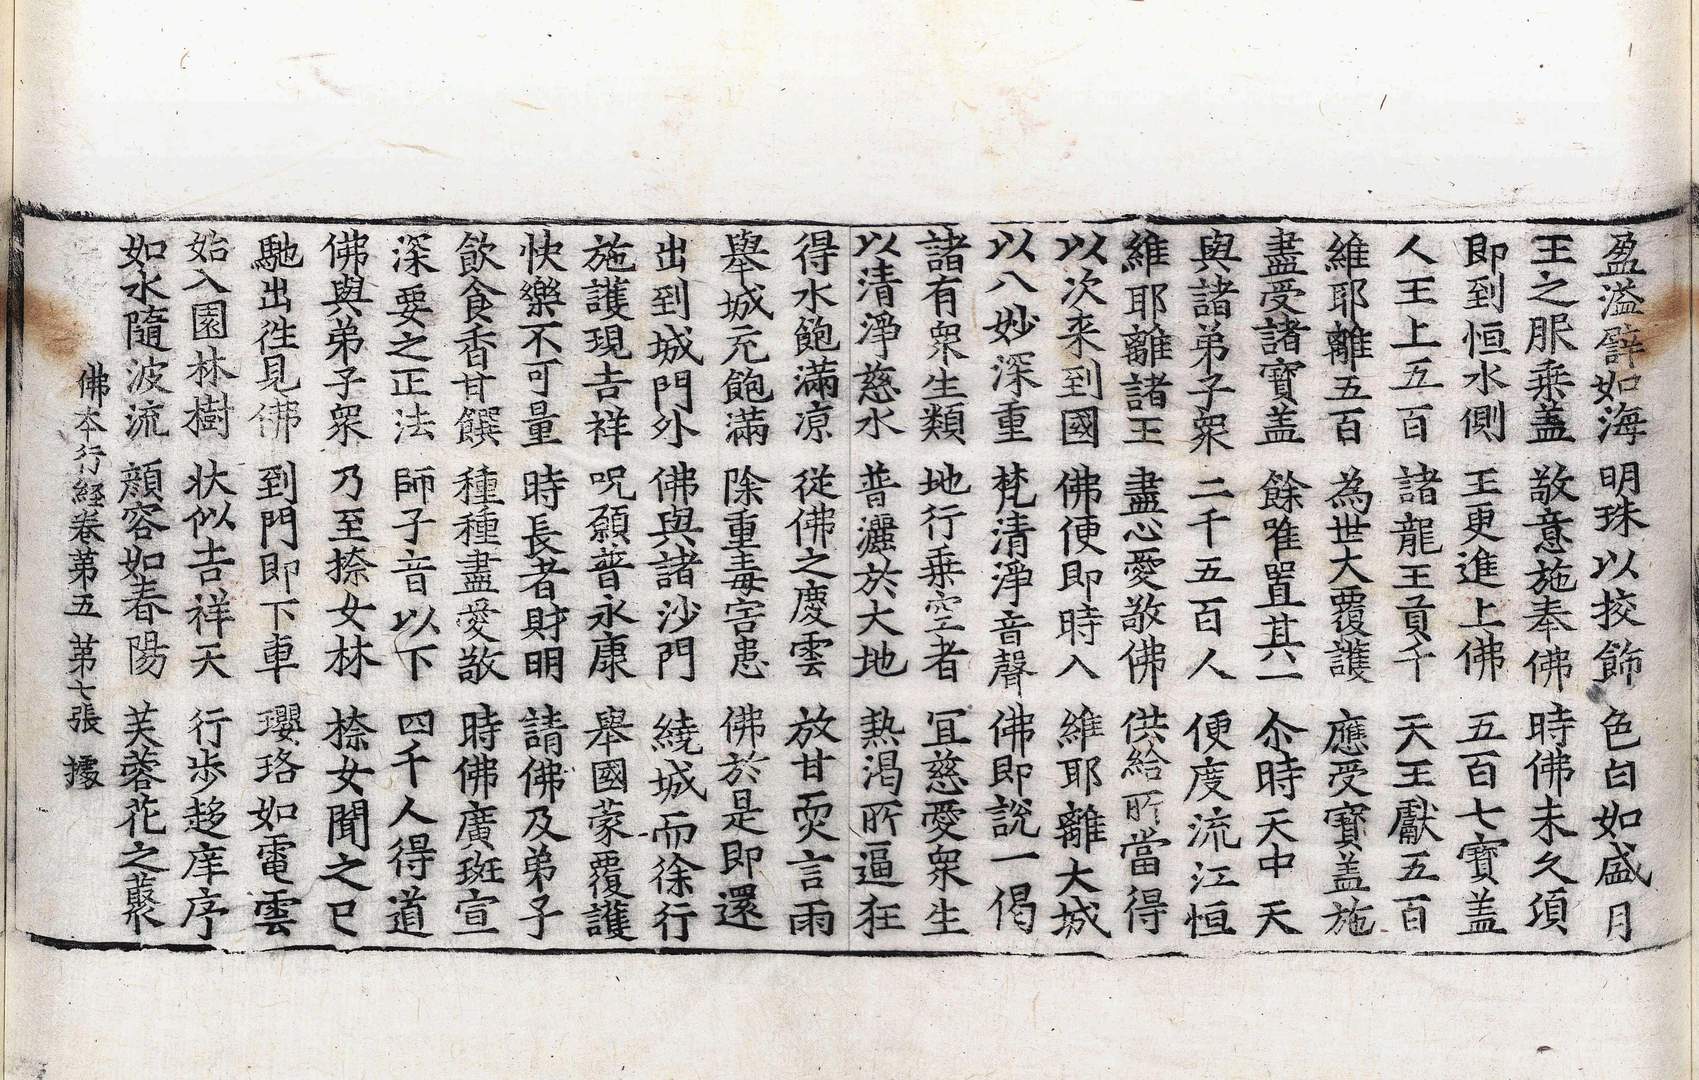 盈溢譬如海　明珠以挍飾　色白如盛月
王之服乗盖　敬意施奉佛　時佛未久湏
即到恒水側　王更進上佛　五百七寶盖
人王上五百　諸龍王貢千　天王獻五百
維耶離五百　為世大覆護　應受寶盖施
盡受諸寶盖　餘唯置其一　尒時天中天
與諸弟子衆　二千五百人　便度流江恒
維耶離諸王　盡心愛敬佛　供給所當得
以次来到國　佛便即時入　維耶離大城
以八妙深重　梵清淨音聲　佛即說一偈
諸有衆生類　地行乗空者　冝慈愛衆生
以清淨慈水　普灑於大地　熱渇所逼狂
得水飽滿凉　從佛之慶雲　放甘露言雨
舉城充飽滿　除重毒害患　佛於是即還
出到城門外　佛與諸沙門　繞城而徐行
施護現吉祥　呪願普永康　舉國蒙覆護
快樂不可量　時長者財明　請佛及弟子
飲食香甘饌　種種盡愛敬　時佛廣班宣
深要之正法　師子音以下　四千人得道
佛與弟子衆　乃至㮈女林　㮈女聞之已
馳出徃見佛　到門即下車　瓔珞如電雲
始入園林樹　状似吉祥天　行步趍庠序
如水隨波流　顔容如春陽　芙蓉花之藂
佛本行経卷苐五　苐七張　據